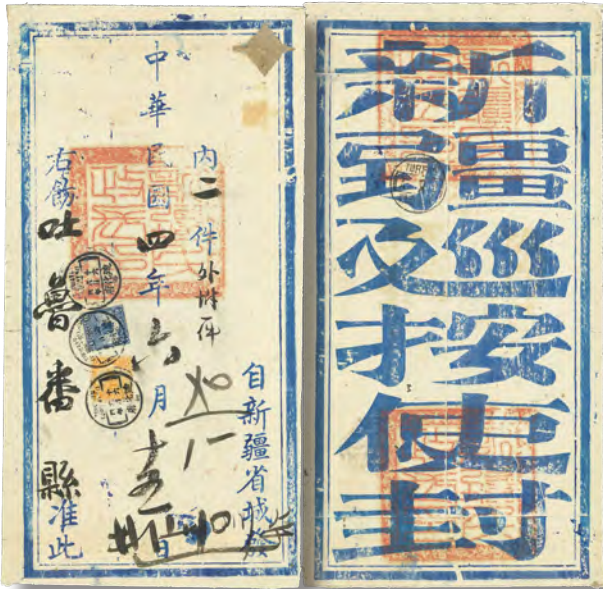 新疆巡按使封
自新疆省城發
內二件外附件
中華民國四年六月十五日
右飭吐魯番縣准此